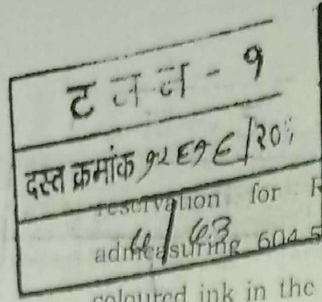 ट न न - १
दस्त क्रमांक १२६१६/२०
reservation for
५/63
admeasuring 604.5
coloured ink in the